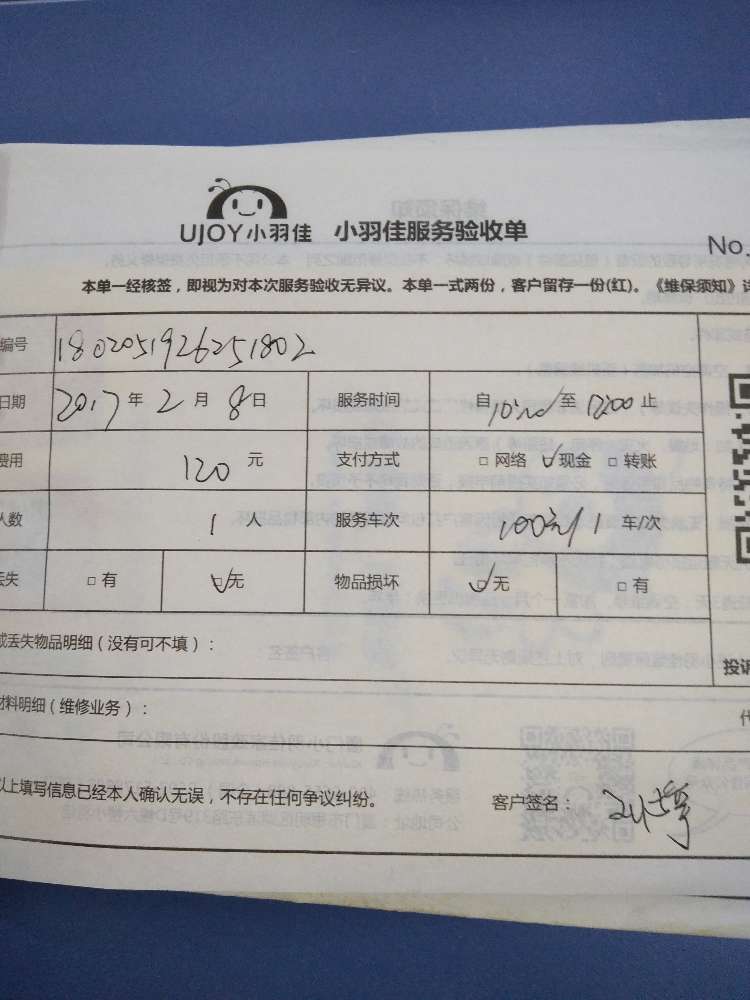 UJOY小羽佳 小羽佳服务验收单
No.
本单一经核签，即视为对本次服务验收无异议。本单一式两份，客户留存一份(红)。《维保须知》详
编号 1802051926251802
日期 2017 年 2 月 8 日 服务时间 自 10:00 至 12:00 止
费用 120 元 支付方式 □ 网络 ☑ 现金 □ 转账
人数 1 人 服务车次 100元/1 车/次
丢失 □ 有 ☑ 无 物品损坏 ☑ 无 □ 有
或丢失物品明细（没有可不填）：
投诉
材料明细（维修业务）：
以上填写信息已经本人确认无误，不存在任何争议纠纷。 客户签名：